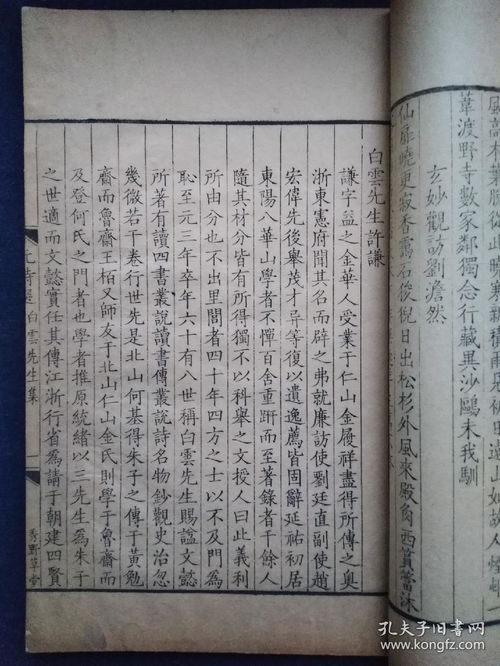 葦渡野寺數家鄰獨念行藏異沙鷗未我馴
玄妙觀訪劉澹然
仙扉曉更寂香靄石後猊日出松杉外風來殿角西蕢當沐
白雲先生許謙
謙字益之金華人受業于仁山金履祥盡得所傳之奥
浙東憲府聞其名而辟之弗就廉訪使劉廷直副使趙
宏偉先後舉茂才异等復以遺逸薦皆固辭延祐初居
東陽八華山學者不憚百舍重趼而至著錄者千餘人
隨其材分皆有所得獨不以科舉之文授人曰此義利
所由分也不出里閭者四十年四方之士以不及門爲
恥至元三年卒年六十有八世稱白雲先生賜諡文懿
所著有讀四書叢說讀書傳叢說詩名物鈔觀史治忽
幾微若干卷行世先是北山何基得朱子之傳于黃勉
齋而魯齋王柏又師友于北山仁山金氏則學于魯齋而
及登何氏之門者也學者推原統緒以三先生爲朱子
之世適而文懿實任其傳江浙行省爲請于朝建四賢
元詩選 白雲先生集
秀野草堂
孔夫子旧书网
www.kongfz.com